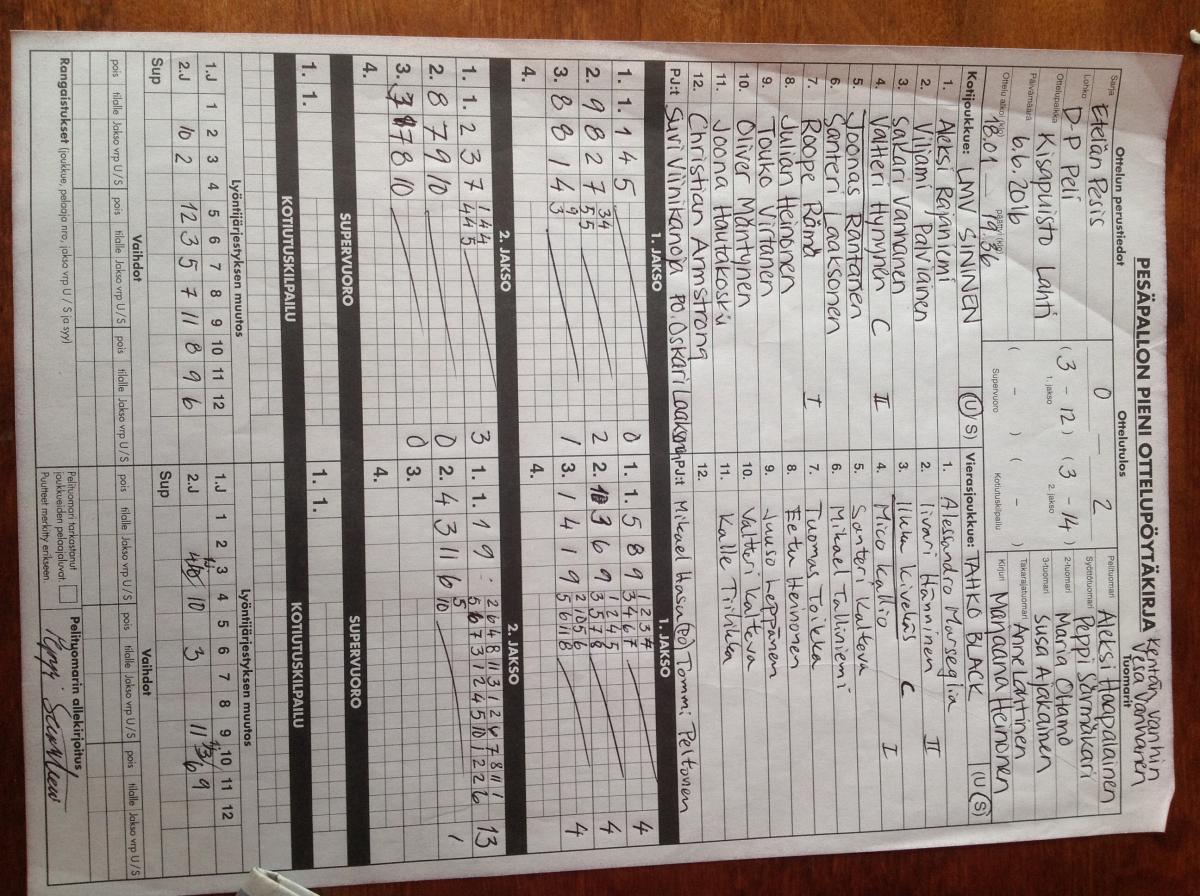 PESÄPALLON PIENI OTTELUPÖYTÄKIRJA
Kentän vanhin
Vesa Vanhanen
Ottelun perustiedot
Ottelutulos
Tuomarit
Sarja Etelän Pesis
Lohko D-P Peli
Ottelupaikka Kisapuisto Lahti
Päivämäärä 6.6.2016
Ottelu alkoi (klo) 18.01 päättyi (klo) 19.36
0 — 2
( 3 - 12 ) ( 3 - 14 )
1. jakso 2. jakso
( - ) ( - )
Supervuoro Kotiutuskilpailu
Pelituomari Aleksi Haapalainen
Syöttötuomari Peppi Särmäkari
2-tuomari Maria Ohtamo
3-tuomari Susa Ajakainen
Takarajatuomari Anne Lahtinen
Kirjuri Marjaana Heinonen
Kotijoukkue: LMV SININEN (U/S)
1. Aleksi Rajaniemi
2. Viljami Palviainen
3. Sakari Vanhanen
4. Valtteri Hynynen C II
5. Joonas Rantanen
6. Santeri Laaksonen
7. Roope Rämä I
8. Julian Heinonen
9. Touko Virtanen
10. Oliver Mäntynen
11. Joona Hautakoski
12. Christian Armstrong
PJ:t Suvi Viinikanoja PO. Oskari Laaksonen
Vierasjoukkue: TAHKO BLACK (U/S)
1. Alessandro Marseglia
2. Iivari Hänninen II
3. Ilkka Kivekäs C
4. Mico Kallio I
5. Santeri Katava
6. Mikael Talliniemi
7. Tuomas Toikka
8. Eetu Heinonen
9. Juuso Leppänen
10. Valtteri Katava
11. Kalle Tiilikka
12.
PJ:t Mikael Hasa (PO) Tommi Peltonen
1. JAKSO
1. 1. 1 4 5 0
2. 9 8 2 7 5 5 3 4 2
3. 8 8 1 4 3 9 1
4.
1. JAKSO
1. 1. 5 8 9 3 4 6 7 1 2 3 7 4
2. 3 6 9 3 5 7 8 1 2 4 5 4
3. 1 4 1 9 5 6 11 8 2 10 5 6 4
4.
2. JAKSO
1. 1. 2 3 7 4 4 5 1 4 4 3
2. 8 7 9 10 0
3. 7 8 10 0
4.
2. JAKSO
1. 1. 1 9 13
2. 4 3 11 6 10 5 1
3.
4.
SUPERVUORO
1. 1.
SUPERVUORO
1. 1.
KOTIUTUSKILPAILU
KOTIUTUSKILPAILU
Lyöntijärjestyksen muutos
1.J 1 2 3 4 5 6 7 8 9 10 11 12
2.J 10 2 12 3 5 7 11 8 9 6
Sup
Lyöntijärjestyksen muutos
1.J 1 2 3 4 5 6 7 8 9 10 11 12
2.J 10 3 11 6 9
Sup
Vaihdot
pois tilalle Jakso vrp U/S pois tilalle Jakso vrp U/S pois tilalle Jakso vrp U/S
Vaihdot
pois tilalle Jakso vrp U/S pois tilalle Jakso vrp U/S pois tilalle Jakso vrp U/S
Rangaistukset (joukkue, pelaaja nro, jakso vrp U / S ja syy)
Pelituomari tarkastanut joukkueiden pelaajaluvat.
Puutteet merkitty erikseen.
Pelituomarin allekirjoitus